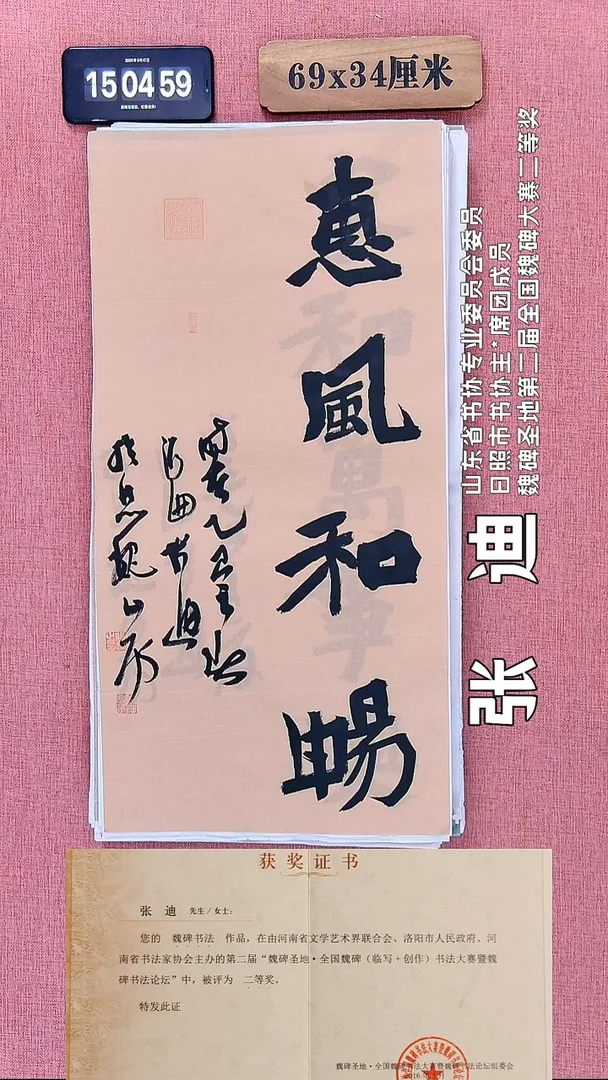 15 04 59
69x34厘米
惠風和暢
山东省书协专业委员会委员
日照市书协主*席团成员
魏碑圣地第二届全国魏碑大赛二等奖
张 迪
获奖证书
张 迪 先生/女士:
您的 魏碑书法 作品,在由河南省文学艺术界联合会、洛阳市人民政府、河
南省书法家协会主办的第二届“魏碑圣地·全国魏碑(临写+创作)书法大赛暨魏
碑书法论坛”中,被评为 二等奖。
特发此证
魏碑圣地·全国魏碑书法大赛暨魏碑书法论坛组委会